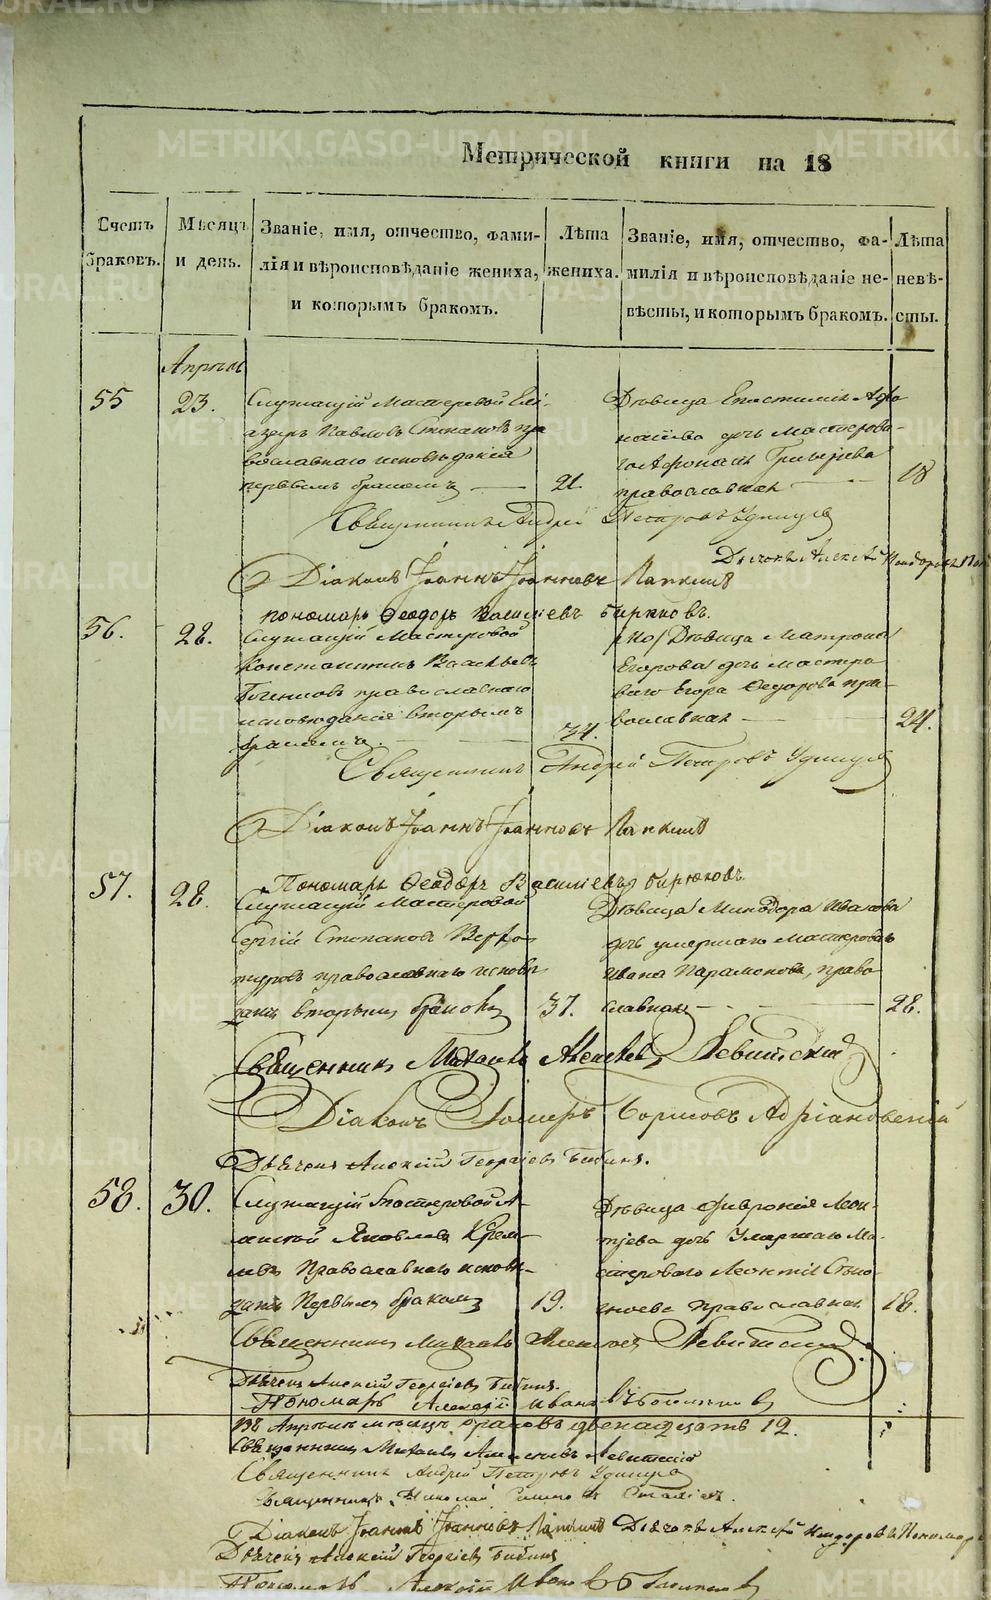 METRIKI.GASO-URAL.RU
Метрической книги на 18
Счетъ браковъ.
Мѣсяцъ и день.
Званіе, имя, отчество, фами-
лія и вѣроисповѣданіе жениха,
и которымъ бракомъ.
Лѣта
жениха.
Званіе, имя, отчество, фа-
милія и вѣроисповѣданіе не-
вѣсты, и которымъ бракомъ.
Лѣта
невѣ-
сты.
Апрѣль
55
23.
Служащій Мастеровой Елі-
азаръ Павловъ Степановъ пра
вославнаго исповѣданія
первымъ бракомъ
21.
Дѣвица Епистимія Афа
насіева дочь Мастерова-
го Афонасія Григорьева
православная
18
Священникъ Андрей Петровъ Удинцев
Дьячокъ Алексѣй
Діаконъ Іоаннъ Іоанновъ Лапкинъ
пономарь Ѳеодоръ Василіевъ бирюковъ.
56.
28.
Служащій Мастеровой
Константинъ Васильевъ
православнаго
исповѣданія вторымъ
бракомъ.
34.
Дѣвица Матрона
Егорова дочь мастеро
ваго Егора Федорова пра-
вославная
24.
Священникъ Андрей Петровъ Удинцев
Діаконъ Іоаннъ Іоанновъ Лапкинъ
Пономарь Ѳеодоръ Василіевъ бирюковъ.
57.
28.
Служащій Мастеровой
Сергій Степановъ Верхо
туровъ православнаго исповѣ
данія вторымъ бракомъ
37.
Дѣвица Минодора Иванова
дочь умершаго Мастероваго
Ивана Парамонова, право
славная
28.
Священникъ Михаилъ Алексѣевъ Левитскій
Діаконъ Борисовъ Адріановскій
Дьячекъ Алексій Георгіевъ Бибинъ.
58.
30.
Служащій Мастеровой А-
Яковлевъ
Православнаго исповѣ-
данія Первымъ бракомъ
19.
Дѣвица Феврониія Леон-
тіева дочь Умершаго Ма-
стероваго Леонтія
православная
18.
Священникъ Михаилъ Алексѣевъ Левитскій.
Дьячекъ Алексій Георгіевъ Бибинъ.
Пономарь Алексій Ивановъ
Въ Апрѣлѣ мѣсяцѣ браковъ двенадцать 12.
Священникъ Михаилъ Алексѣевъ Левитскій
Священникъ Андрей Петровъ Удинцев
Священникъ Николай
Діаконъ Іоаннъ Іоанновъ Лапкинъ Дьячокъ Алексѣй
Дьячекъ Алексій Георгіевъ Бибинъ
Пономарь Алексій Ивановъ